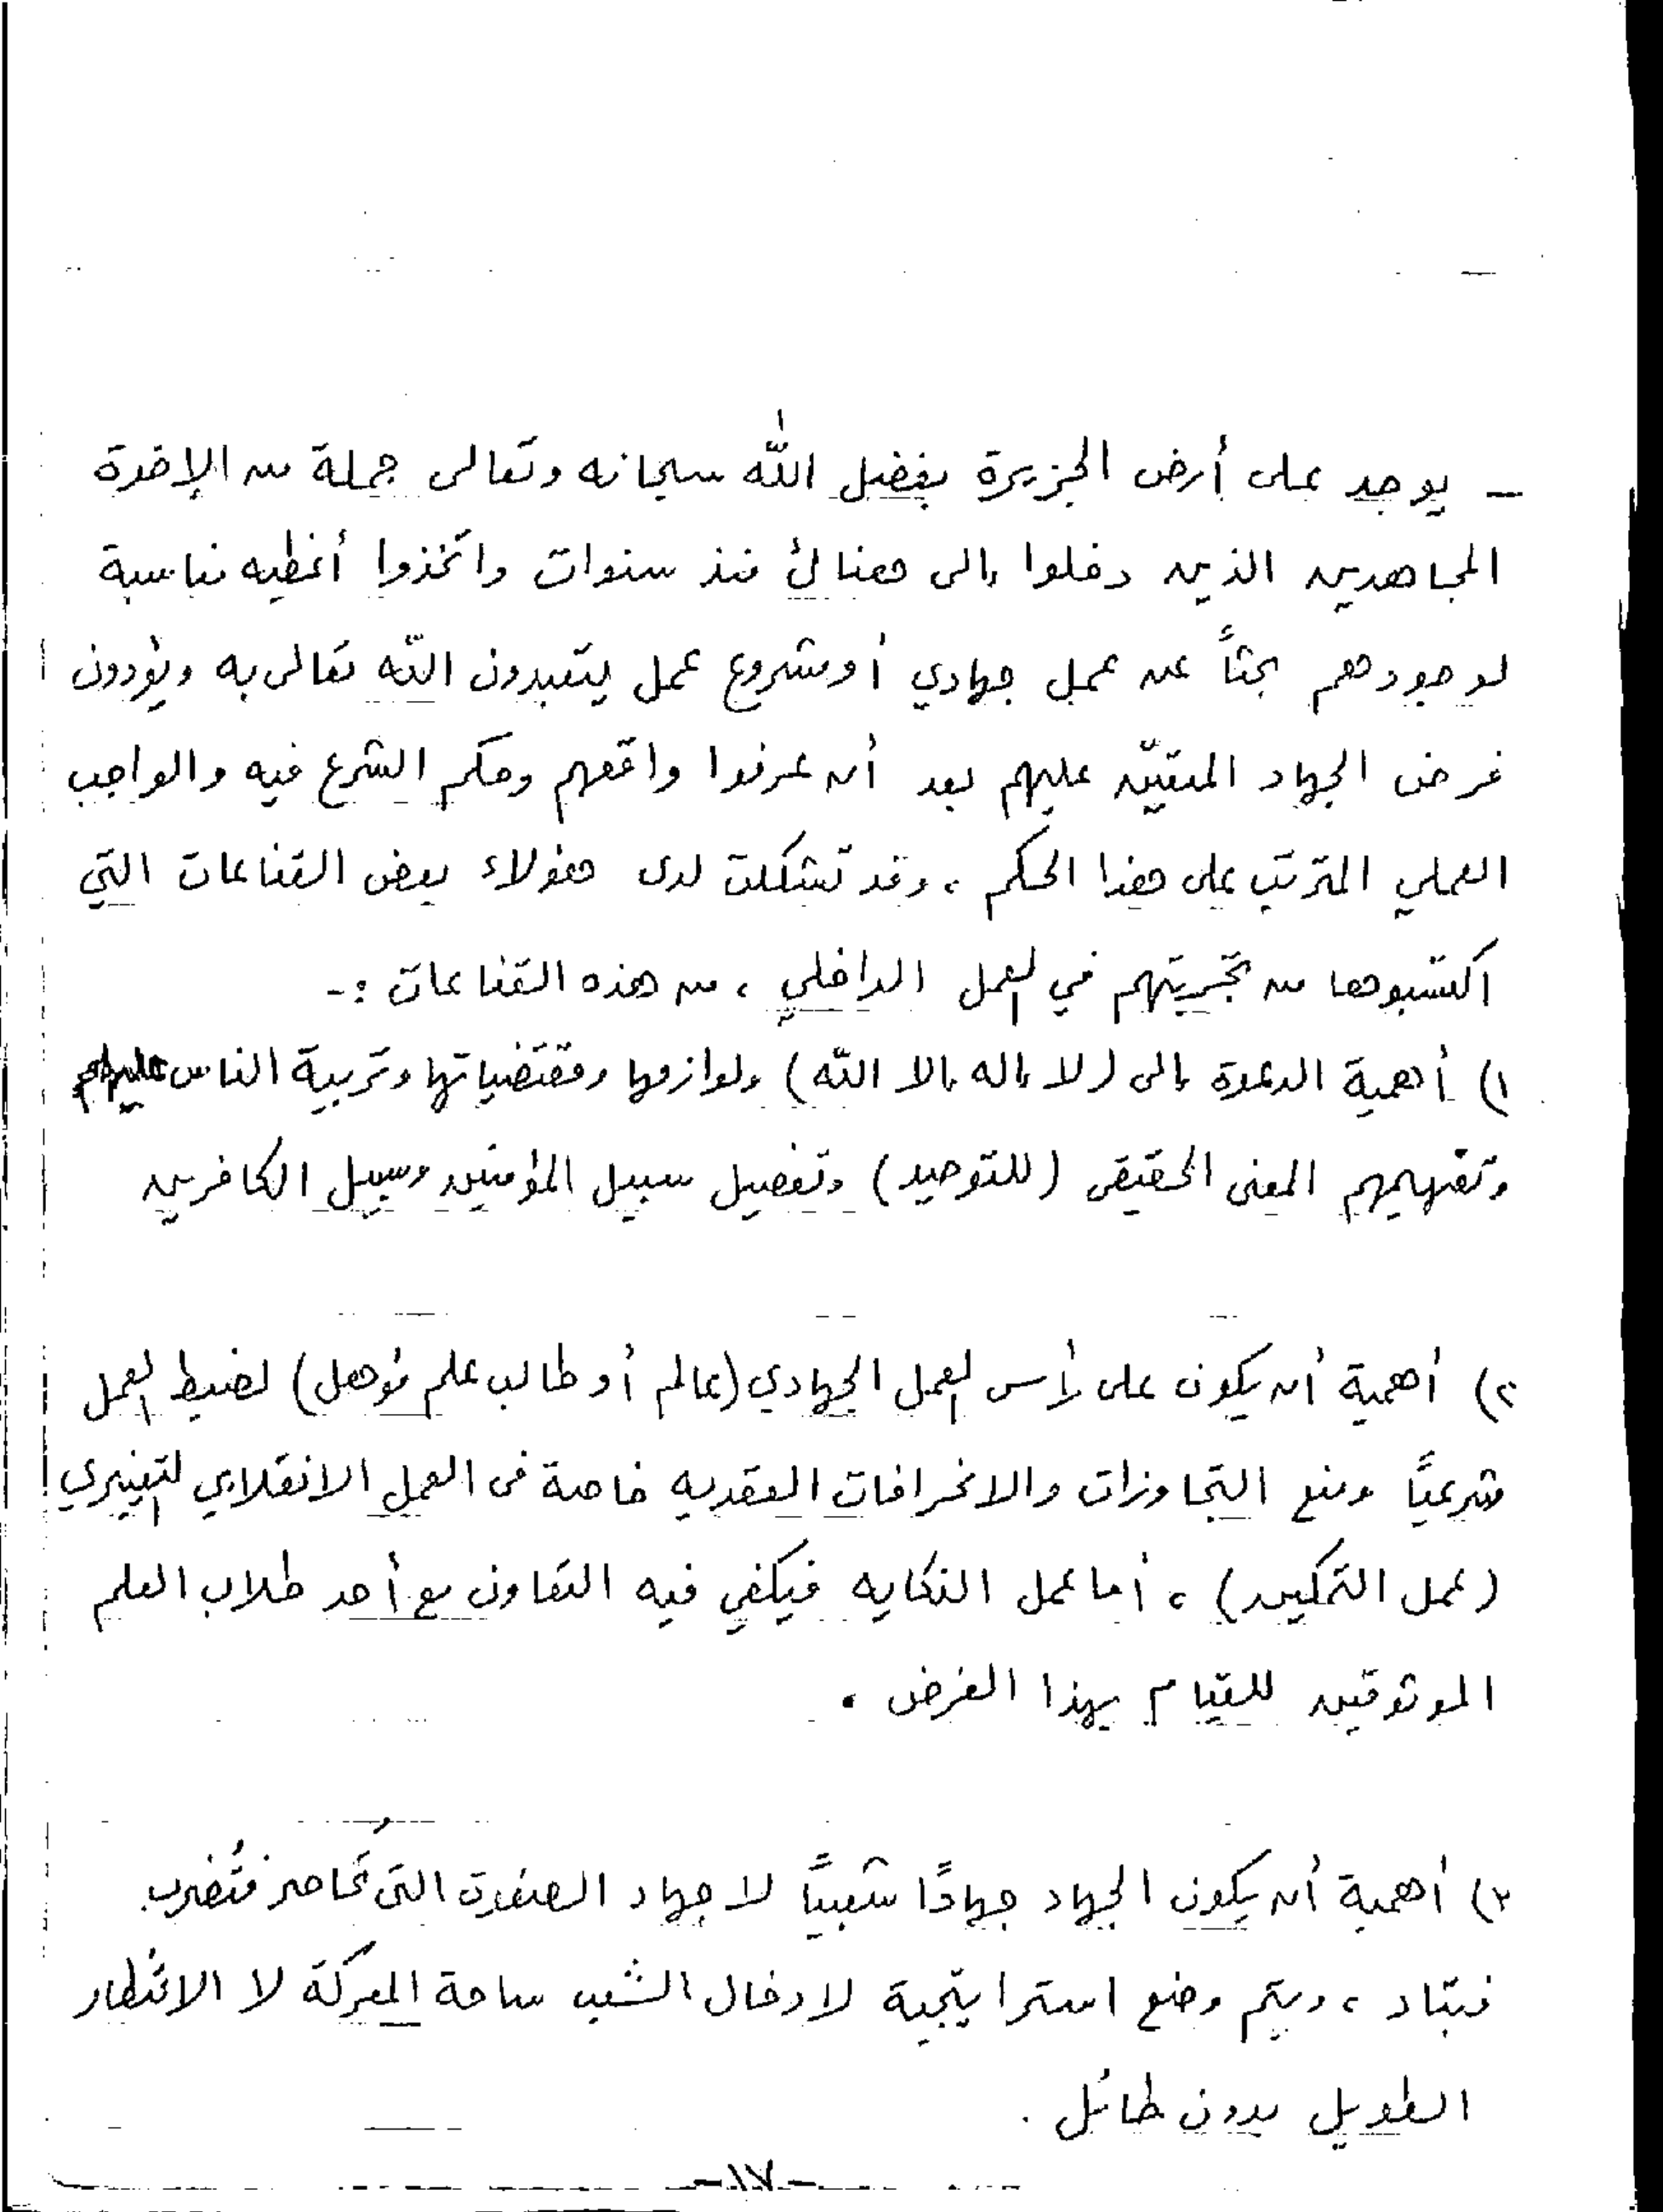 – يوجد على أرض الجزيرة بفضل الله سبحانه وتعالى جملة من الإخوة
المجاهدين الذين دخلوا إلى هناك منذ سنوات واتخذوا أغطيه مناسبة
لوجودهم بحثاً عن عمل جهادي أو مشروع عمل يتعبدون الله تعالى به ويؤدون
فرض الجهاد المتعيّن عليهم بعد أن عرفوا واقعهم وحكم الشرع فيه والواجب
العملي المترتب على هذا الحكم ، وقد تشكلت لدى هؤلاء بعض القناعات التي
اكتسبوها من تجربتهم في العمل الداخلي ، من هذه القناعات :-
١) أهمية الدعوة إلى (لا إله إلا الله) ولوازمها ومقتضياتها وتربية الناس عليها
وتفهيمهم المعنى الحقيقى (للتوحيد) وتفصيل سبيل المؤمنين وسبيل الكافرين
٢) أهمية أن يكون على رأس العمل الجهادي (عالم أو طالب علم مؤهل) لضبط العمل
شرعيًا ومنع التجاوزات والانحرافات العقديه خاصة فى العمل الانقلابي التغييري
(عمل التمكين) ، أما عمل النكايه فيكفي فيه التعاون مع أحد طلاب العلم
الموثوقين للقيام بهذا الغرض .
٣) أهمية أن يكون الجهاد جهادًا شعبيًا لا جهاد الصفوة التى تُحاصر فتُضرب
فتباد ، ويتم وضع استراتيجية لادخال الشعب ساحة المعركة لا الانتظار
الطويل بدون طائل .
-١٧-